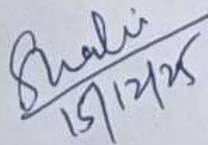 Shalu
15/12/25